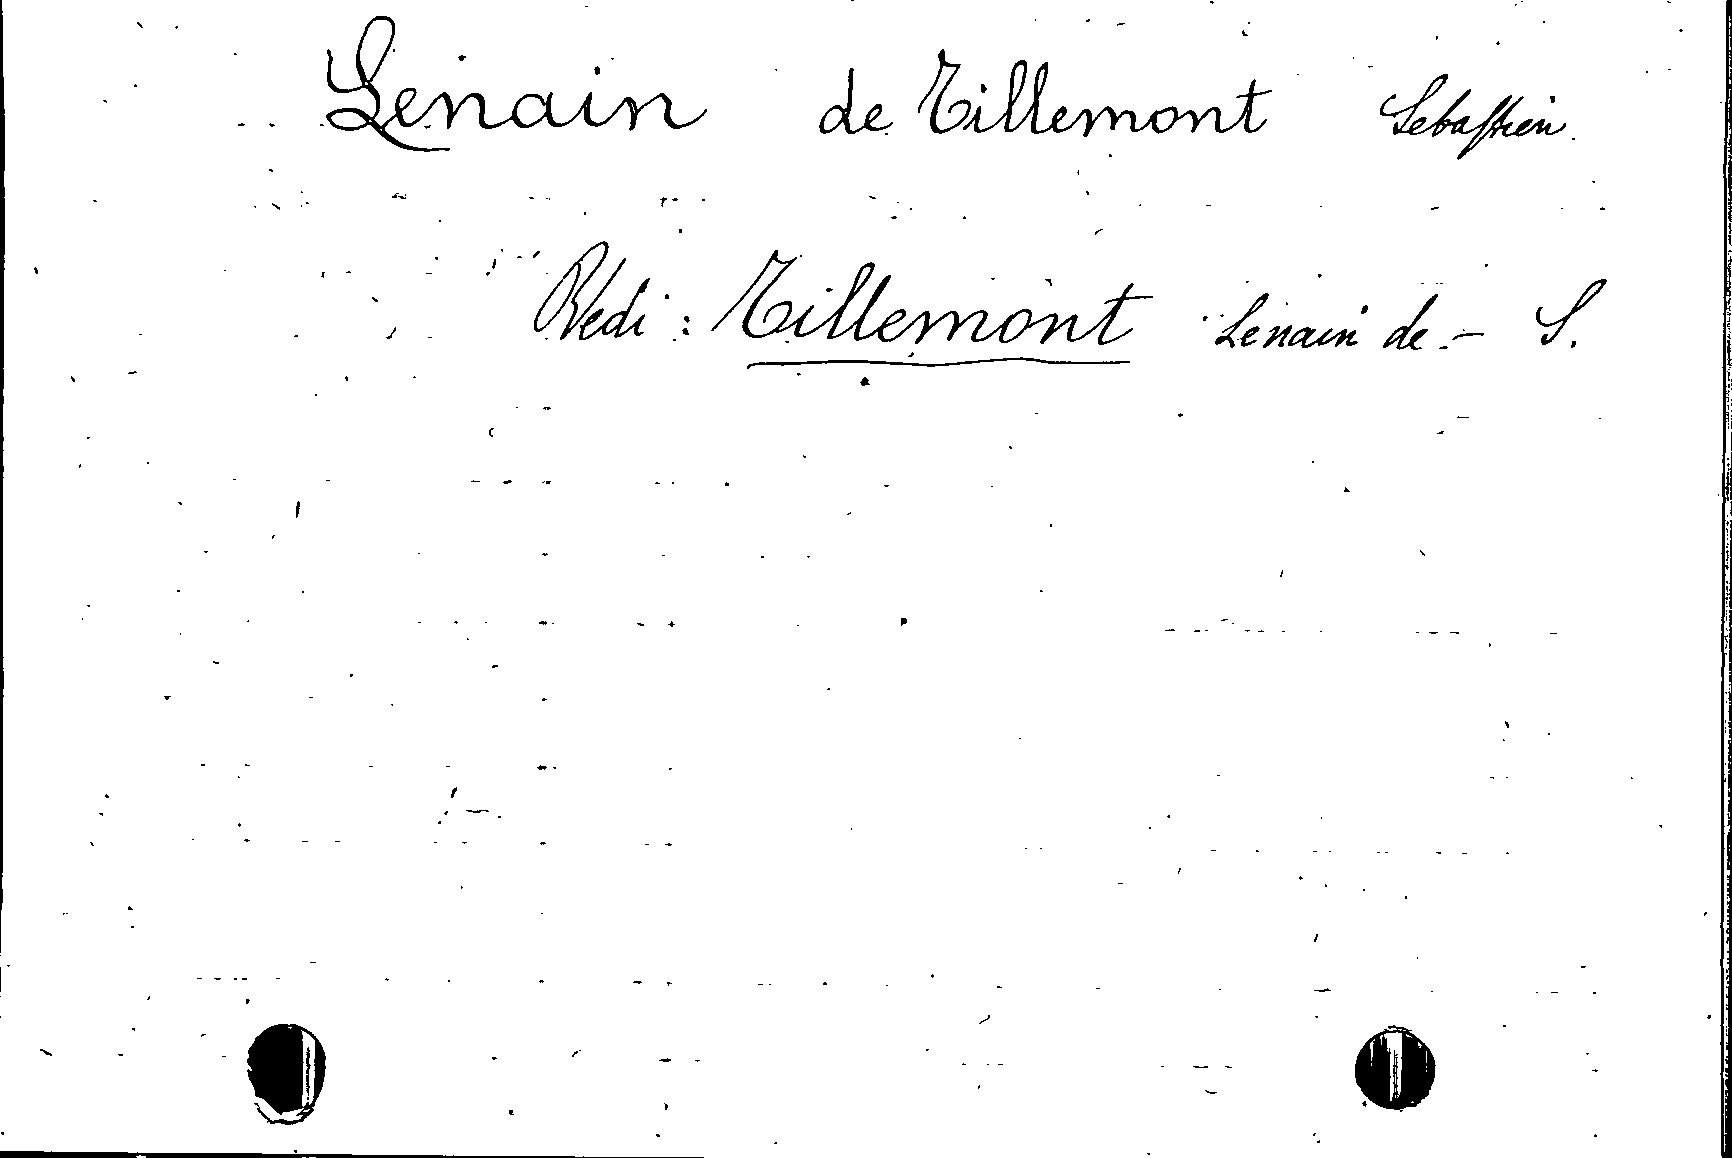 Lenain de Tillemont Sebastien
Vedi: Tillemont Lenain de - S.